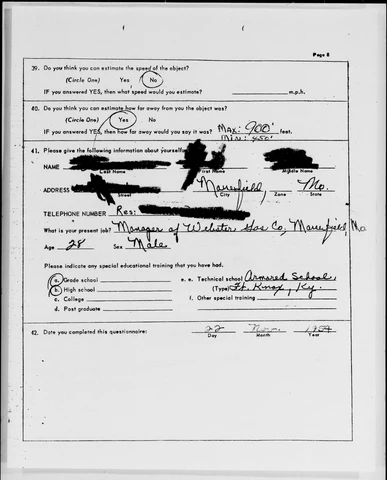 Page 8
39. Do you think you can estimate the speed of the object?
(Circle One) Yes No
IF you answered YES, then what speed would you estimate? m.p.h.
40. Do you think you can estimate how far away from you the object was?
(Circle One) Yes No
IF you answered YES, then how far away would you say it was? Max: 900' feet.
Min: 450'
41. Please give the following information about yourself:
NAME
Last Name First Name Middle Name
ADDRESS Marshfield, Mo.
Street City Zone State
TELEPHONE NUMBER Res:
What is your present job? Manager of Webster Gas Co, Marshfield, Mo
Age 28 Sex Male
Please indicate any special educational training that you have had.
a. Grade school e. Technical school Armored School
b. High school (Type) Ft. Knox, Ky.
c. College f. Other special training
d. Post graduate
42. Date you completed this questionnaire: 22 Nov. 1954
Day Month Year